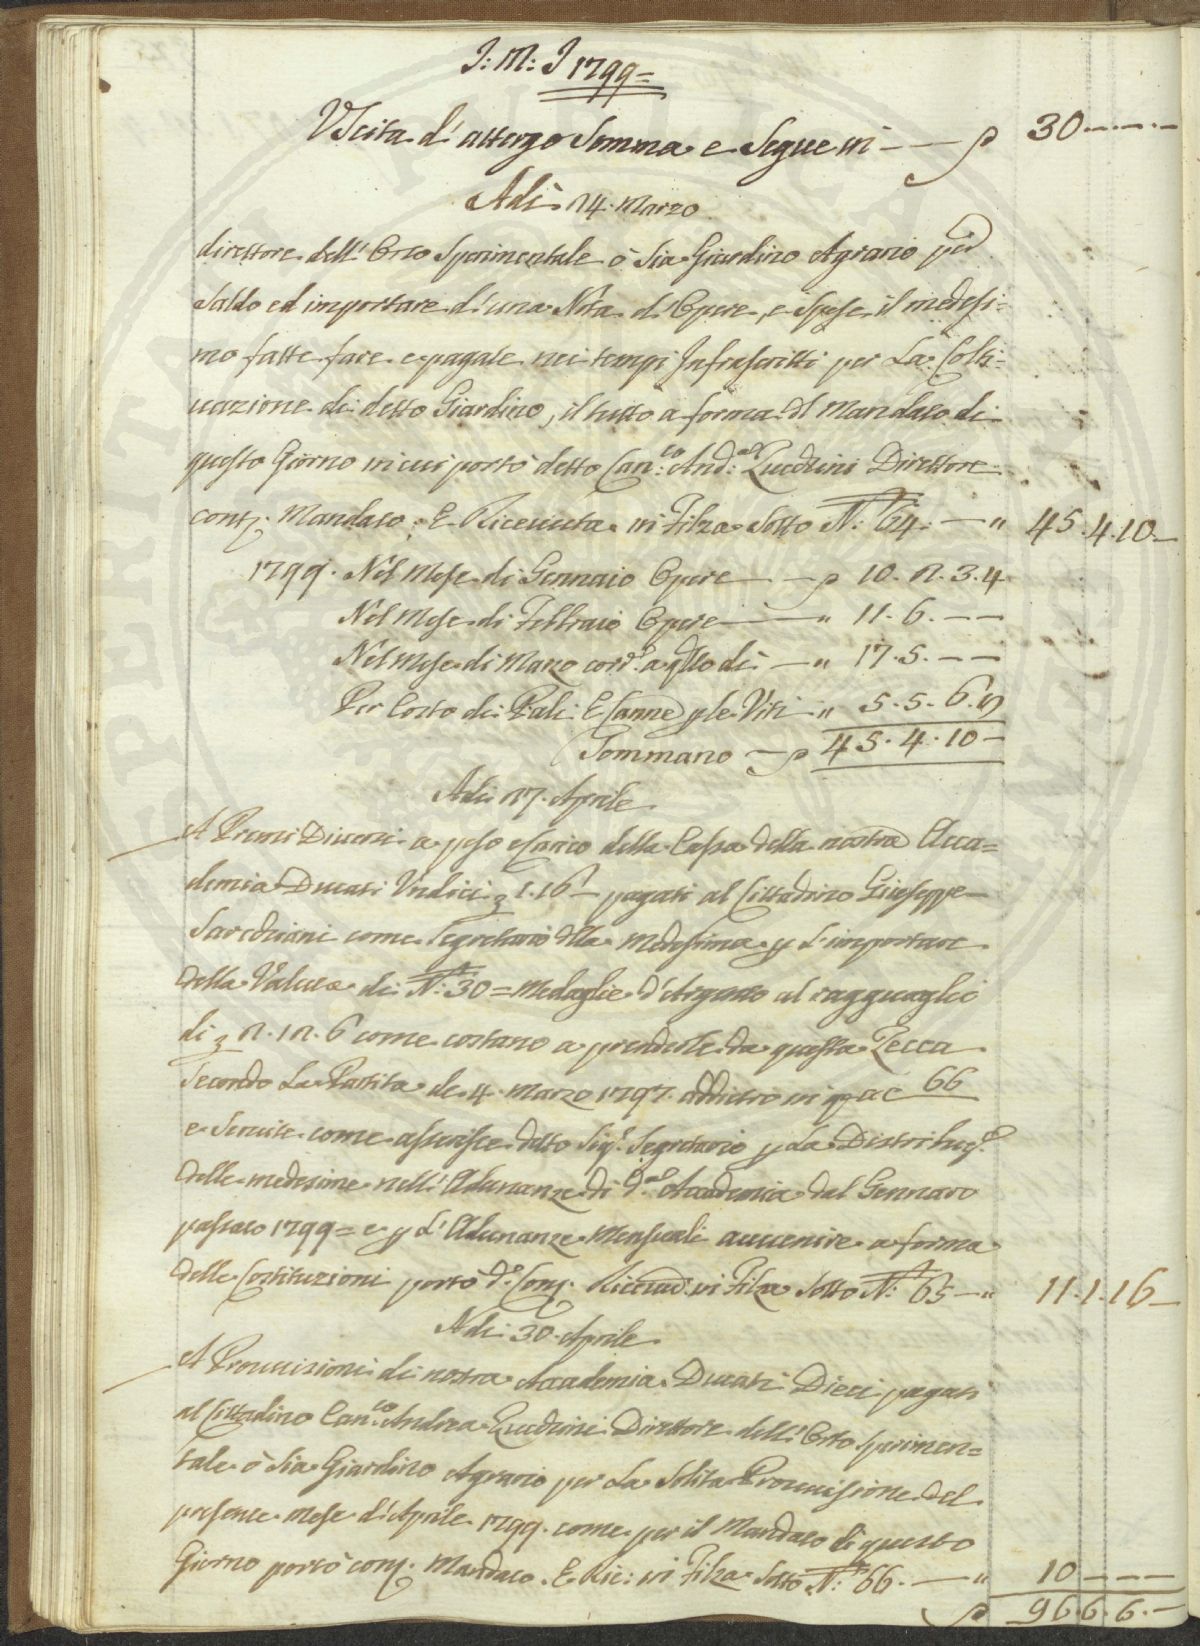 J: M: J 1799=
Uscita d'attergo Somma e Segue in — — 30 — — —
Adi 14. Marzo
direttore dell'Orto Sperimentale ò sia Giardino Agrario per
Saldo ed importare d'una Nota di Opere, e Spese il medesi-
mo fatte fare e pagate nei tempi Infrascritti per La Colti-
uazione di detto Giardino, il tutto a forma del Mandato di
questo Giorno in cui portò detto Can.co And.a Zucchini Direttore
cont. Mandato, E Riceuuta in Filza sotto N.° 64. — " 45. 4. 10 —
1799. Nel Mese di Gennaio Opere — 10. 2. 3. 4
Nel Mese di Febbraio Opere — " 11. 6. — —
Nel Mese di Marzo corr.e a qsto dì — " 17. 5. — —
Per Costo di Pali E Canne p le Viti " 5. 5. 6.
Sommano — 45. 4. 10 —
Adi 17. Aprile
A Premi Diuersi a peso e carico della Cassa della nostra Acca=
demia Ducati Vndici 1. 16 — pagati al Cittadino Giuseppe
Sarchiani come Segretario della Medesima p L'importare
della Valuta di N.° 30 = Medaglie d'Argento al ragguaglio
di 2. 12. 6 come costano a prenderle da questa Zecca
Secondo La Partita de 4. Marzo 1797. addietro in qo a c 66
e Seruite come asserisce detto Sig.r Segretario p La Distribuz.e
delle medesime nell'Adunanze di d.a Accademia dal Gennaro
passato 1799 = e p L'Adunanze Mensuali auuenire a forma
delle Costituzioni portò d.o Cont. Riceuuta in Filza sotto N.° 65 — " 11. 1. 16 —
Adi 30. Aprile
A Prouuisioni di nostra Accademia Ducati Dieci pagati
al Cittadino Can.co Andrea Zucchini Direttore dell'Orto Sperimen=
tale ò sia Giardino Agrario per La Solita Prouuisione del
presente Mese d'Aprile 1799. come per il Mandato di questo
Giorno portò cont. Mandato. E Ric: in Filza sotto N.° 66. — " 10 — — —
96. 6. 6. —